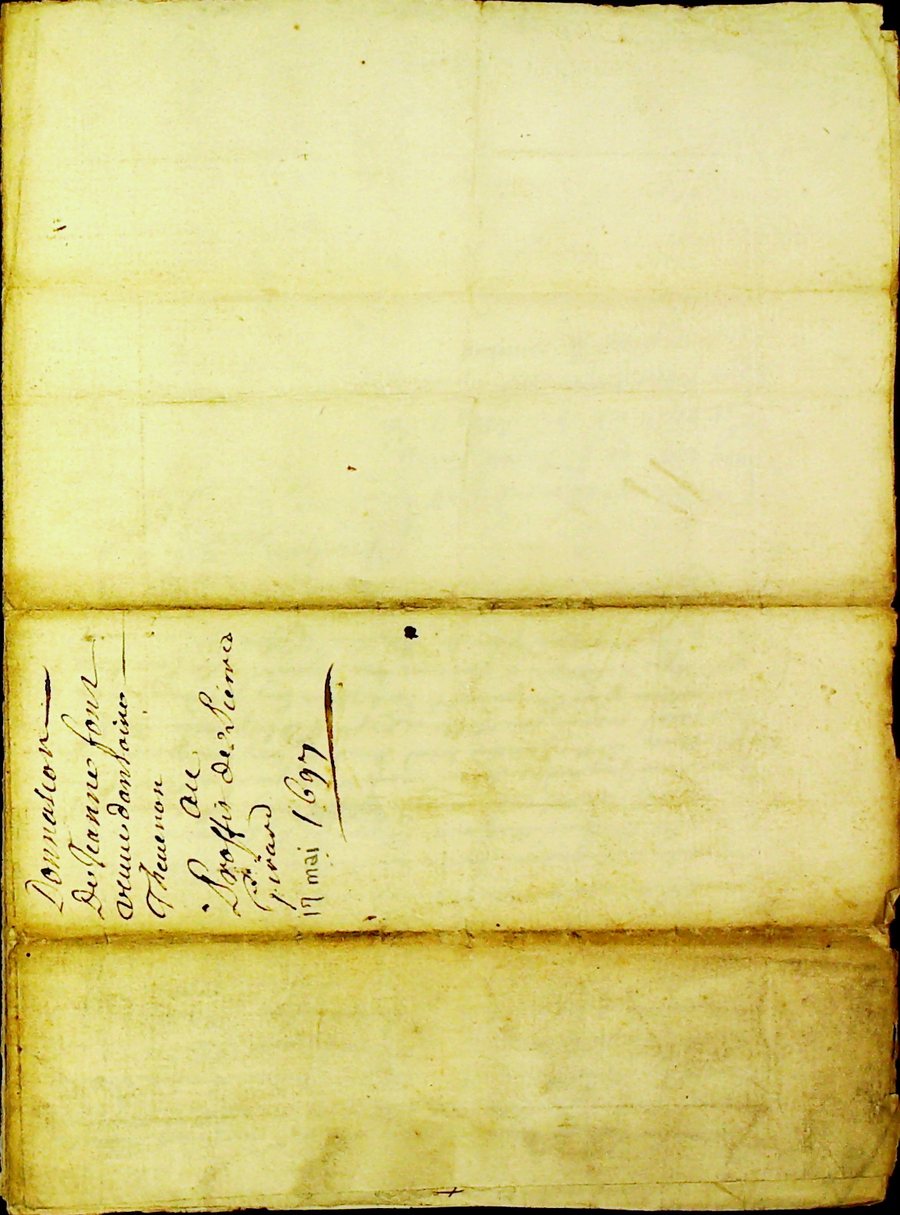 Donnation
De Jeanne font
veuue dantoine
Theuenon
Au
Proffit de Pierre
Girard
17 mai 1697